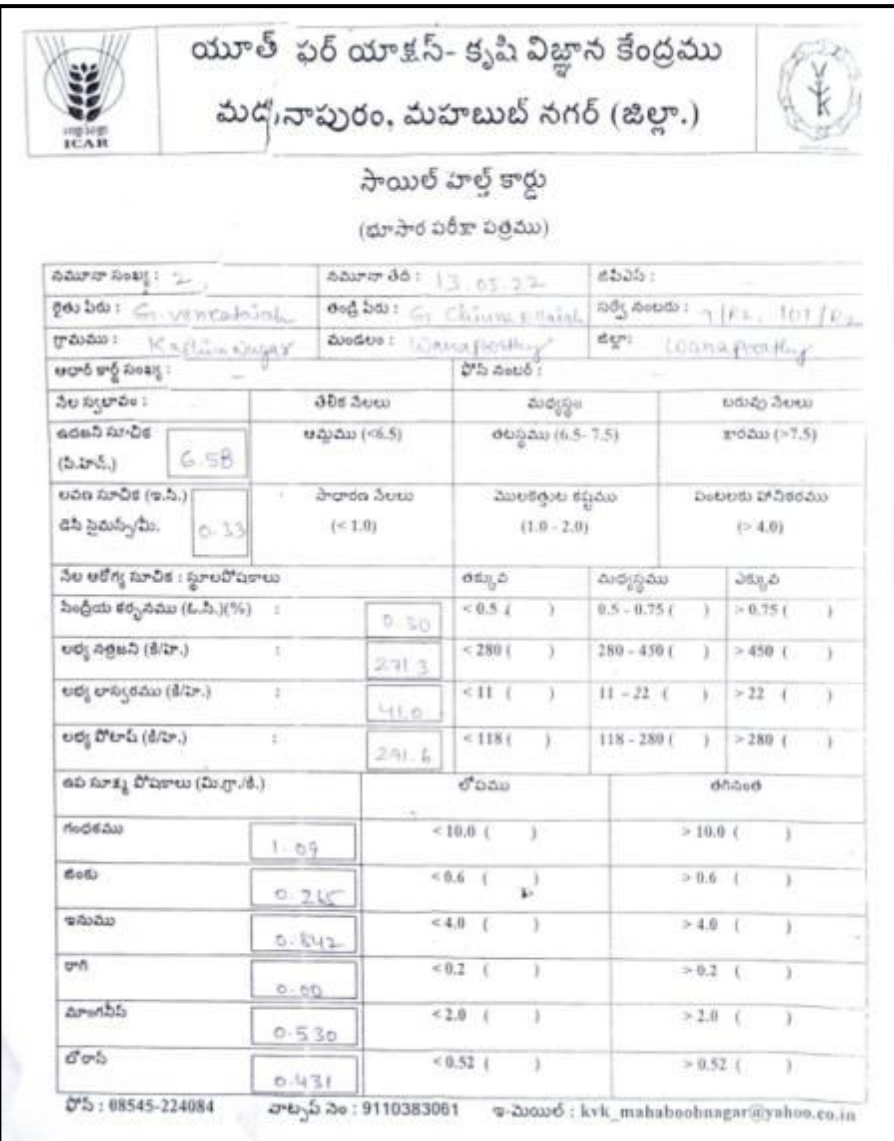 యూత్ ఫర్ యాక్షన్- కృషి విజ్ఞాన కేంద్రము
మదనాపురం, మహబుబ్ నగర్ (జిల్లా.)
ICAR
YK
సాయిల్ హెల్త్ కార్డు
(భూసార పరీక్షా పత్రము)
నమూనా సంఖ్య : 2 నమూనా తేది : 13.05.22 జిపిఎస్ :
రైతు పేరు : G. Venkataiah తండ్రి పేరు : G. Chinna Ellaiah సర్వే నంబరు : 101/R2
గ్రామము : Nagar మండలం : Wanaparthy జిల్లా: Wanaparthy
ఆధార్ కార్డ్ సంఖ్య : ఫోన్ నంబర్ :
నేల స్వభావం : తేలిక నేలలు మధ్యస్థం బరువు నేలలు
ఉదజని సూచిక (పి.హెచ్.) 6.58 ఆమ్లము (<6.5) తటస్థము (6.5- 7.5) కారము (>7.5)
లవణ సూచిక (ఇ.సి.) డెసి సైమన్స్/మీ. 0.33 : సాధారణ నేలలు (< 1.0) మొలకెత్తుట కష్టము (1.0 - 2.0) పంటలకు హానికరము (> 4.0)
నేల ఆరోగ్య సూచిక : స్థూలపోషకాలు తక్కువ మధ్యస్థము ఎక్కువ
సేంద్రీయ కర్బనము (ఓ.సి.)(%) : 0.30 < 0.5 ( ) 0.5 - 0.75 ( ) > 0.75 ( )
లభ్య నత్రజని (కి/హె.) : 271.3 < 280 ( ) 280 - 450 ( ) > 450 ( )
లభ్య భాస్వరము (కి/హె.) : 41.0 < 11 ( ) 11 – 22 ( ) > 22 ( )
లభ్య పోటాష్ (కి/హె.) : 291.6 < 118 ( ) 118 - 280 ( ) > 280 ( )
ఉప సూక్ష్మ పోషకాలు (మి.గ్రా./కి.) లోపము తగినంత
గంధకము 1.09 < 10.0 ( ) > 10.0 ( )
జింకు 0.265 < 0.6 ( ) > 0.6 ( )
ఇనుము 0.842 < 4.0 ( ) > 4.0 ( )
రాగి 0.00 < 0.2 ( ) > 0.2 ( )
మాంగనీస్ 0.530 < 2.0 ( ) > 2.0 ( )
బోరాన్ 0.431 < 0.52 ( ) > 0.52 ( )
ఫోన్ : 08545-224084 వాట్సప్ నెం : 9110383061 ఇ-మెయిల్ : kvk_mahaboobnagar@yahoo.co.in